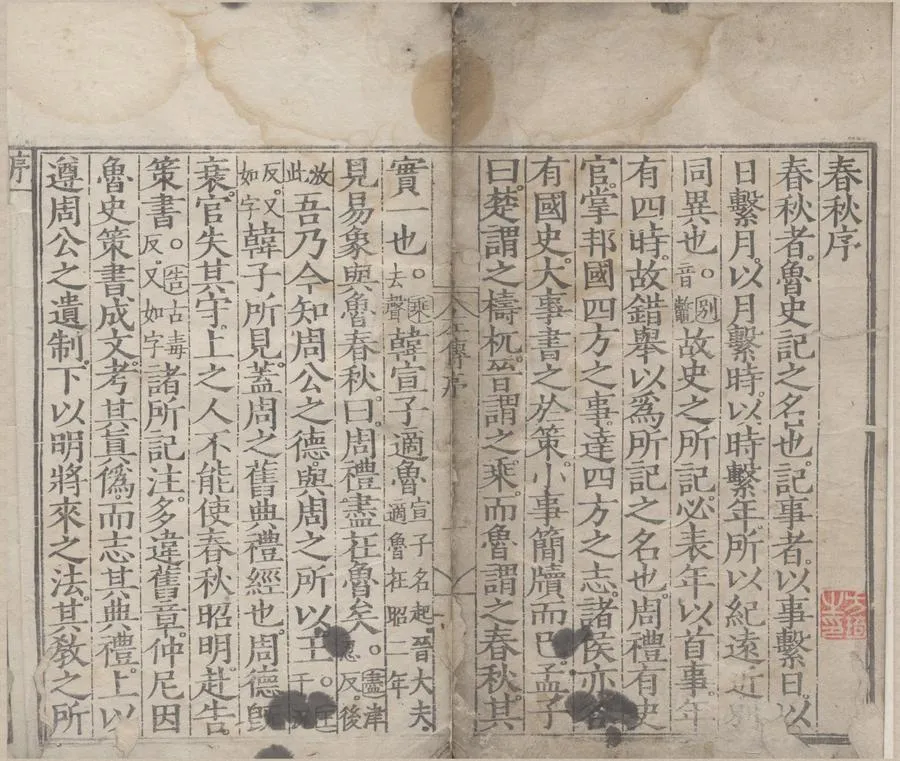 春秋序
春秋者。魯史記之名也。記事者。以事繫日。以
日繫月。以月繫時。以時繫年。所以紀遠近別
同異也。別音鼈故史之所記。必表年以首事。年
有四時。故錯舉以爲所記之名也。周禮有史
官。掌邦國四方之事。達四方之志。諸侯亦各
有國史。大事書之於策。小事簡牘而已。孟子
曰。楚謂之檮杌。晉謂之乘。而魯謂之春秋。其
左傳序
實一也。乘去聲韓宣子適魯宣子名起晉大夫。適魯在昭二年
見易象與魯春秋。曰。周禮盡在魯矣。盡津忍反。後
放此吾乃今知周公之德。與周之所以王。王于況
反。又如字韓子所見。蓋周之舊典禮經也。周德既
衰。官失其守。上之人不能使春秋昭明。赴告
策書。告古毒反。又如字諸所記注。多違舊章。仲尼因
魯史策書成文。考其真僞。而志其典禮。上以
遵周公之遺制。下以明將來之法。其教之所
序